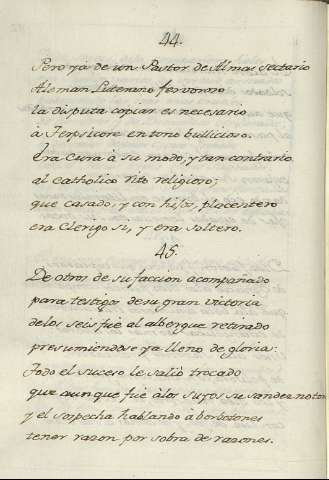 44.
Pero ya de un Pastor de Almas sectario
Aleman Luterano fervoroso
la disputa copiar es necesario
à Terpsicore en tono bullicioso.
Era Cura à su modo, y tan contrario
al Catholico rito religioso;
que casado, y con hijos, placentero
era Clerigo si, y era soltero.
45.
De otros de su faccion acompañado
para testigos de su gran victoria
delos seis fuè al albergue retirado
presumiendose ya lleno de gloria:
Todo el suceso le saliò trocado
que aunque fuè àlos suyos su sandez
y el sospecha hablando à borbotones
tener razon por sobra de razones.